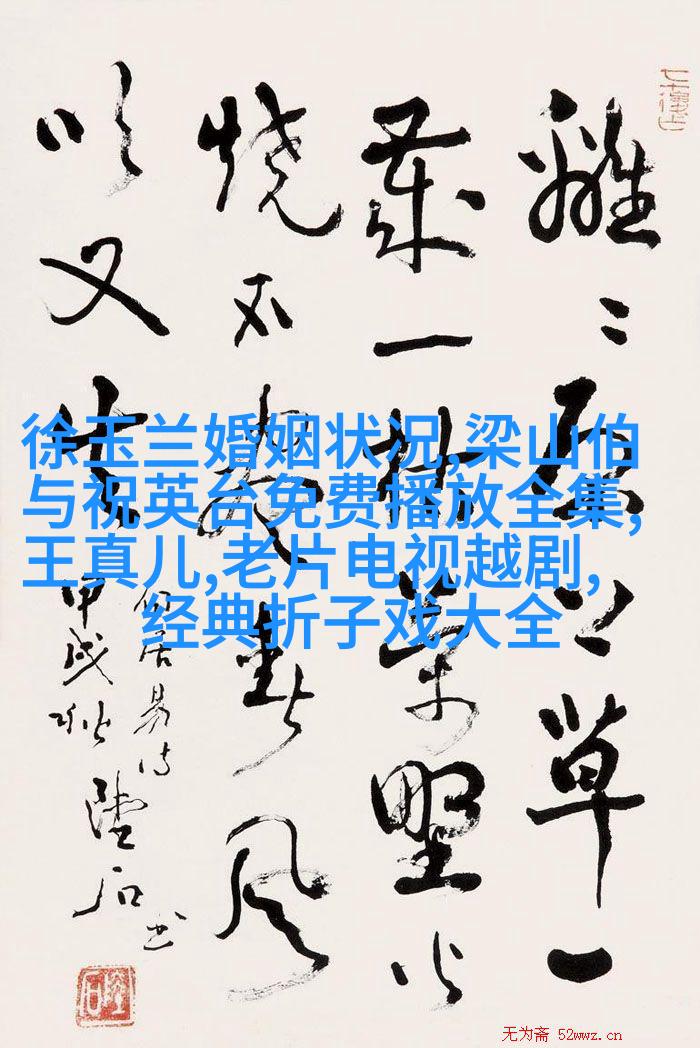 離〻原上草一
歲一枯榮野火
燒不盡春風
吹又生
白居易诗
甲戌秋
石书
徐玉兰婚姻状况,梁山伯
与祝英台免费播放全集,
王真儿,老片电视越剧,
经典折子戏大全
无为斋 52wwz.cn